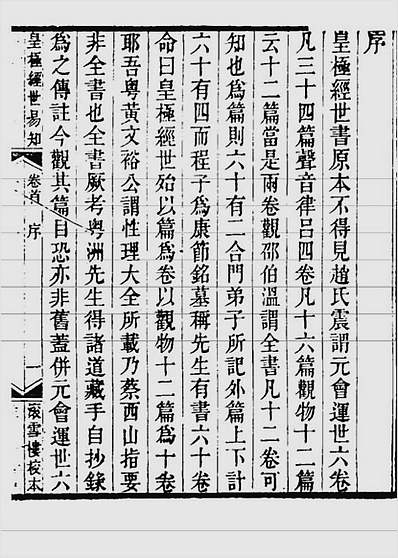 序
皇極經世書原本不得見趙氏震謂元會運世六卷
凡三十四篇聲音律呂四卷凡十六篇觀物十二篇
云十二篇當是兩卷觀邵伯溫謂全書凡十二卷可
知也為篇則六十有二合門弟子所記外篇上下計
六十有四而程子為康節銘墓稱先生有書六十卷
命曰皇極經世殆以篇為卷以觀物十二篇為十卷
耶吾粵黃文裕公謂性理大全所載乃蔡西山指要
非全書也全書厥考粵洲先生得諸道藏手自抄錄
為之傳註今觀其篇目恐亦非舊蓋併元會運世六
皇極經世易知
卷首 序
一
雪樓校本